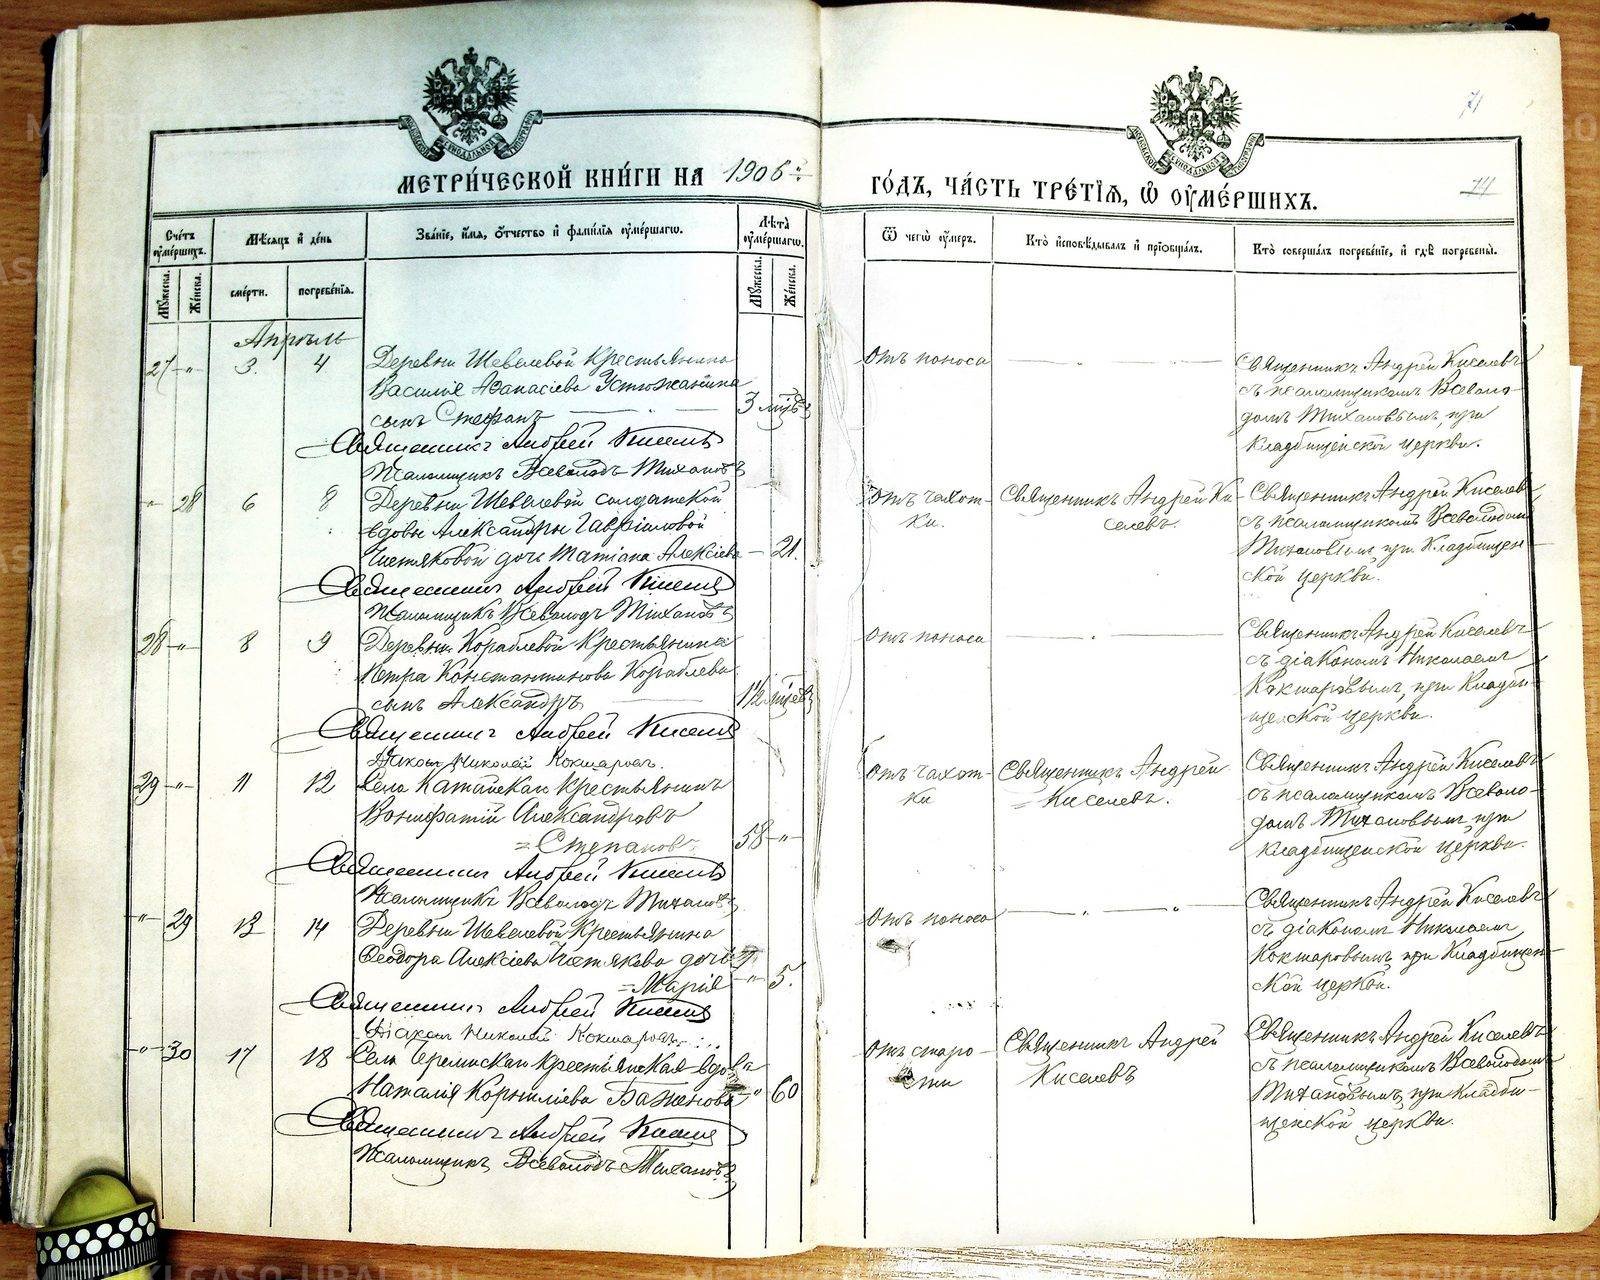 71
74
МЕТРИ́ЧЕСКОЙ КНИ́ГИ НА 1906 й
ГО́ДЪ, ЧА́СТЬ ТРЕ́ТІЯ, Ѡ ОУМЕ́РШИХЪ.
Сче́тъ оуме́ршихъ.
Мѣ́сяцъ и день
Зва́ніе, и́мя, о́тчество и фами́лія оуме́ршагѡ.
Лѣта̀ оуме́ршагѡ.
Ѿ чегѡ̀ оу́меръ.
Кто̀ исповѣ́дывалъ и пріѡбща́лъ.
Кто̀ соверша́лъ погребе́ніе, и гдѣ̀ погребены̀.
Мꙋжеска.
Же́нска.
сме́рти.
погребе́нія.
Мꙋжеска.
Же́нска.
Апрѣль
27 — " 3. 4 Деревни Шевелевой крестьянина
Василія Аѳанасіева Устюжанина
сынъ Стефанъ 3 мѣс
Священникъ Андрей Киселевъ
Псаломщикъ Всеволодъ Тихановъ
Отъ поноса
Священникъ Андрей Киселевъ
съ псаломщикомъ Всеволо-
домъ Тихановымъ, при
кладбищенской церкви.
" 28 6 8 Деревни Шевелевой солдатской
вдовы Александры Гавріиловой
Чистяковой дочь Татіана Алексіева — 21.
Священникъ Андрей Киселевъ
Псаломщикъ Всеволодъ Тихановъ
Отъ чахот-
ки.
Священникъ Андрей Ки-
селевъ.
Священникъ Андрей Киселевъ
съ псаломщикомъ Всеволодомъ
Тихановымъ при кладбищен-
ской церкви.
28 — " 8 9 Деревни Кораблевой крестьянина
Петра Константинова Кораблева
сынъ Александръ 1 1/2 мѣсяц
Священникъ Андрей Киселевъ
Діаконъ Николай Кокшаровъ.
Отъ поноса
Священникъ Андрей Киселевъ
съ діакономъ Николаемъ
Кокшаровымъ, при кладби-
щенской церкви.
29 — " 11 12 Села Катайскаго крестьянинъ
Вонифатій Александровъ
= Степановъ 58 — "
Священникъ Андрей Киселевъ
Псаломщикъ Всеволодъ Тихановъ
Отъ чахот-
ки
Священникъ Андрей
= Киселевъ.
Священникъ Андрей Киселевъ
съ псаломщикомъ Всеволо-
домъ Тихановымъ при
кладбищенской церкви.
" 29 13 14 Деревни Шевелевой крестьянина
Ѳеодора Алексіева Чистякова дочь
= Марія — " 5.
Священникъ Андрей Киселевъ
Діаконъ Николай Кокшаровъ
Отъ поноса
Священникъ Андрей Киселевъ
съ діакономъ Николаемъ
Кокшаровымъ при кладбищен-
ской церкви.
" 30 17 18 Села крестьянская вдова
Наталія Корниліева Баженова " 60
Священникъ Андрей Киселевъ
Псаломщикъ Всеволодъ Тихановъ
Отъ старо-
сти
Священникъ Андрей
Киселевъ
Священникъ Андрей Киселевъ
съ псаломщикомъ Всеволодомъ
Тихановымъ при кладби-
щенской церкви.